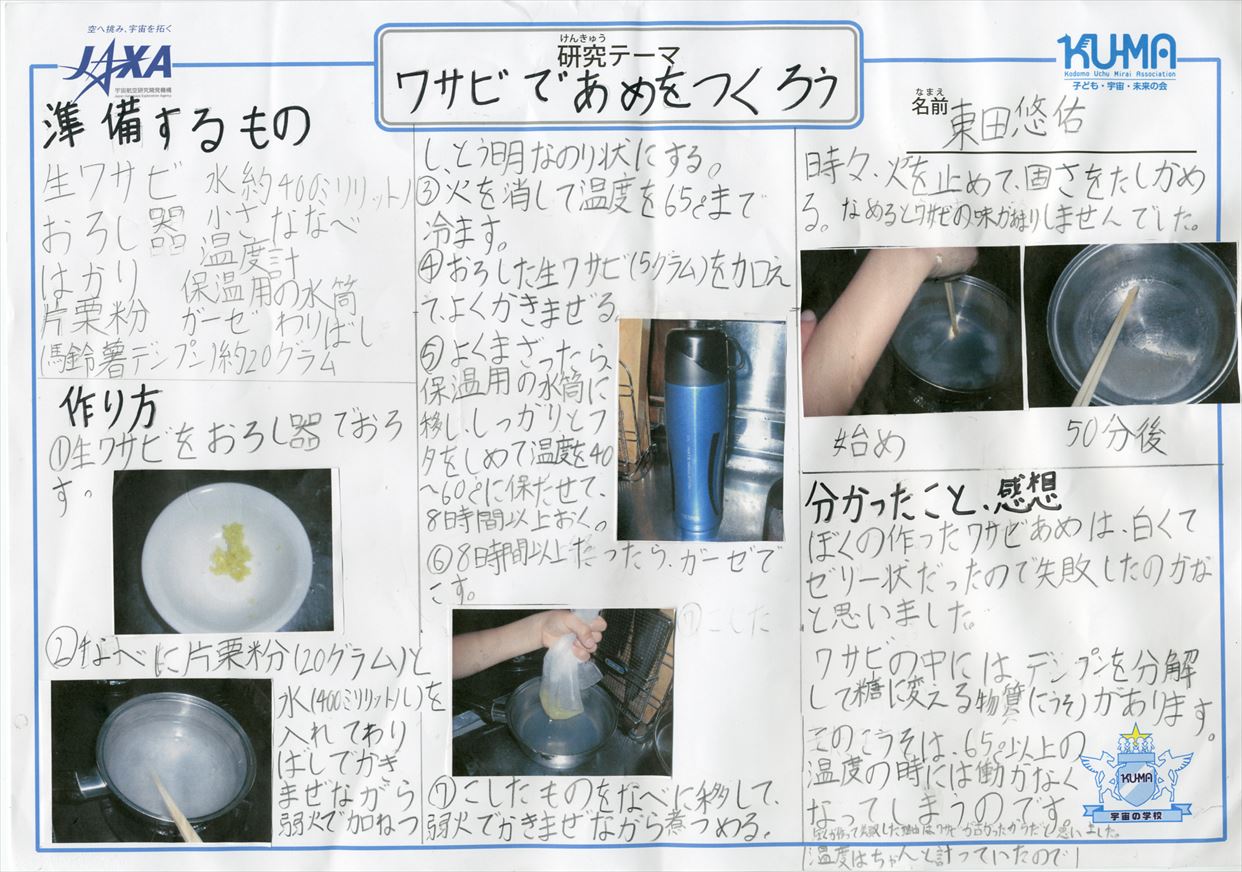 空へ挑み、宇宙を拓く
JAXA
宇宙航空研究開発機構
Japan Aerospace Exploration Agency
けんきゅう
研究テーマ
ワサビであめをつくろう
KU-MA
Kodomo Uchu Mirai Association
子ども・宇宙・未来の会
なまえ
名前
東田悠佑
準備するもの
生ワサビ 水約400(ミリリットル)
おろし器 小さななべ
温度計
はかり 保温用の水筒
片栗粉 ガーゼ わりばし
(馬鈴薯デンプン)約20グラム
作り方
①生ワサビをおろし器でおろ
す。
②なべに片栗粉(20グラム)と
水(400ミリリットル)を
入れてわり
ばしでかき
まぜながら
弱火で加ねつ
し、とう明なのり状にする。
③火を消して温度を65℃まで
冷ます。
④おろした生ワサビ(5グラム)を加え
て、よくかきまぜる。
⑤よくまざったら、
保温用の水筒に
移し、しっかりとフ
タをしめて温度を40
~60℃に保たせて、
8時間以上おく。
⑥8時間以上たったら、ガーゼで
こす。
⑦こした
⑦こしたものをなべに移して、
弱火でかきまぜながら煮つめる。
時々、火を止めて、固さをたしかめ
る。なめるとワサビの味があまりしませんでした。
始め
50分後
分かったこと、感想
ぼくの作ったワサビあめは、白くて
ゼリー状だったので失敗したのかな
と思いました。
ワサビの中にはデンプンを分解
して糖に変える物質(こうそ)があります。
このこうそは、65℃以上の
温度の時には働かなく
なってしまうのです。
ぼくが作って失敗した理由はワサビが古かったからだと思いました。
(温度はちゃんと計っていたので)
KU-MA
宇宙の学校